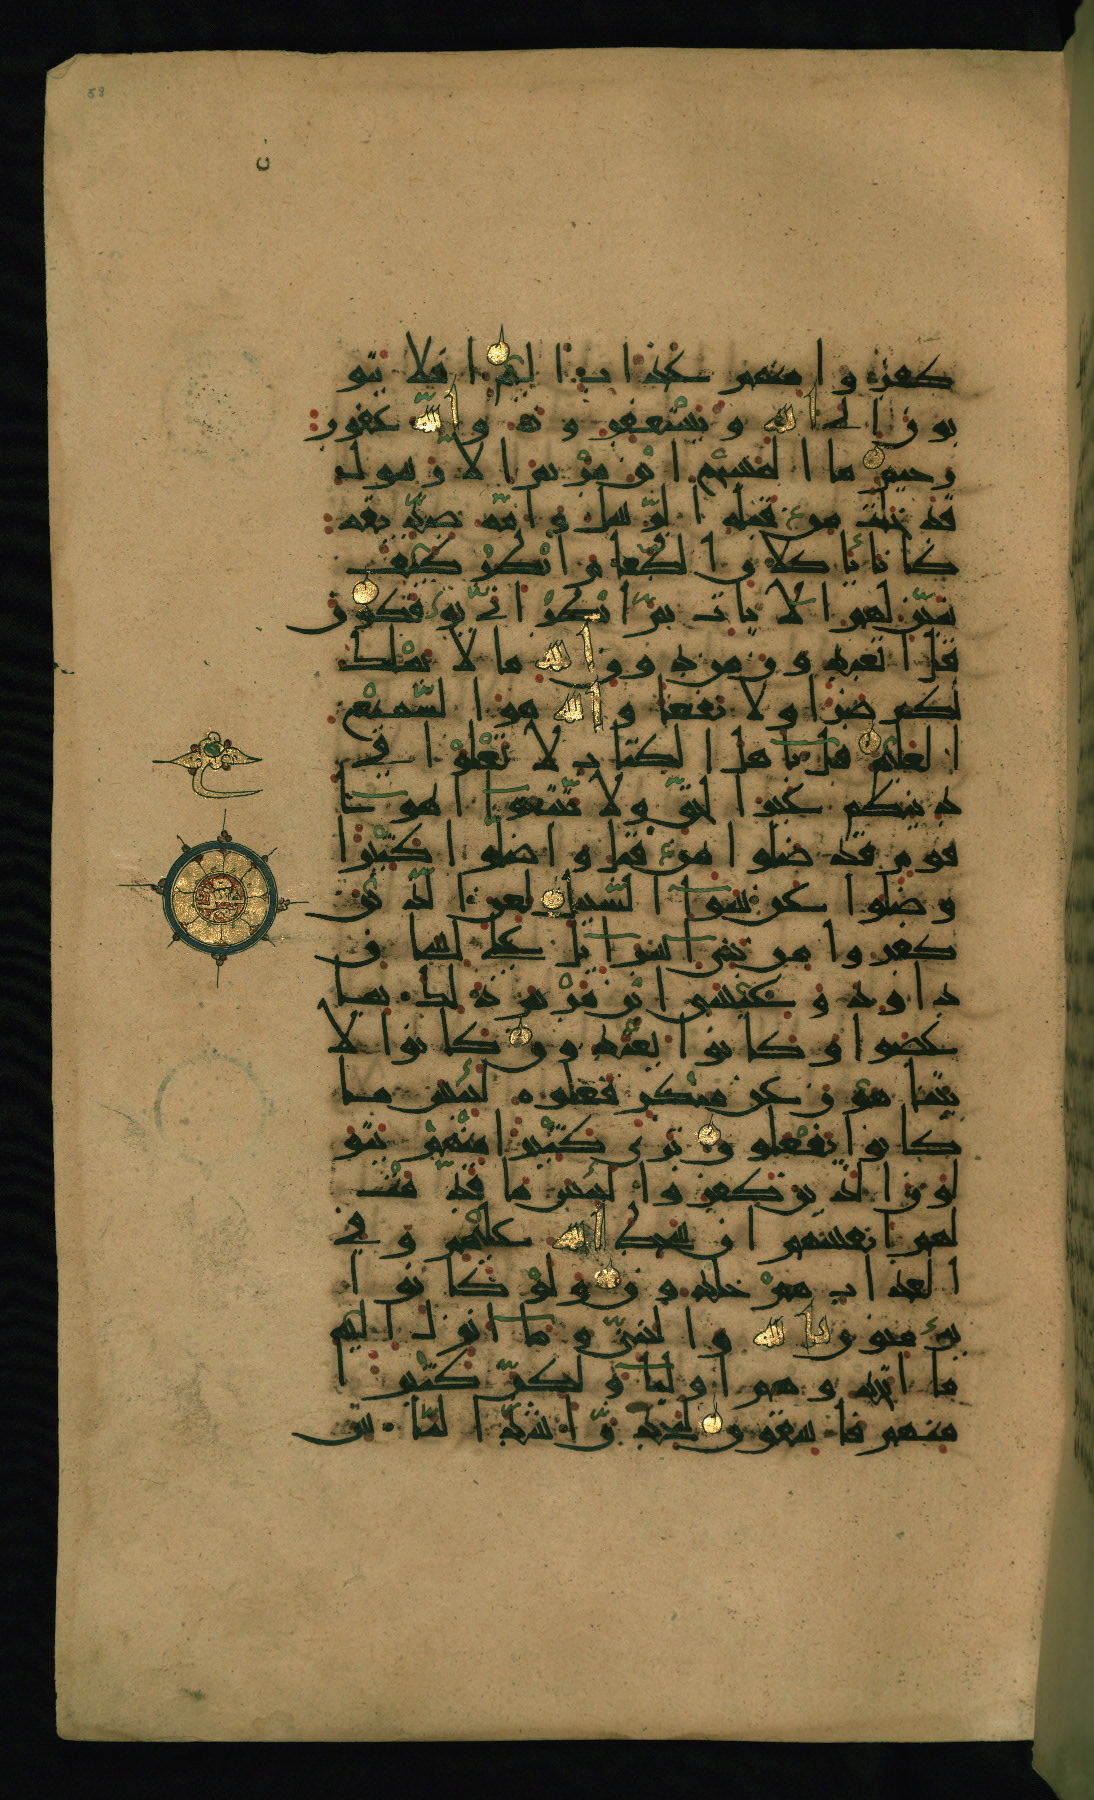 58
كفروا منهم عذاب اليم افلا يتو
بون الى الله ويستغفرونه والله غفور
رحيم ما المسيح ابن مريم الا رسول
قد خلت من قبله الرسل وامه صديقة
كانا ياكلان الطعام انظر كيف
نبين لهم الايات ثم انظر انى يوفكون
قل اتعبدون من دون الله ما لا يملك
لكم ضرا ولا نفعا والله هو السميع
العليم قل ياهل الكتاب لا تغلوا في
دينكم غير الحق ولا تتبعوا اهوا
قوم قد ضلوا من قبل واضلوا كثيرا
وضلوا عن سوا السبيل لعن الذين
كفروا من بني اسرايل على لسان
داود وعيسى ابن مريم ذلك بما
عصوا وكانوا يعتدون كانوا لا
يتناهون عن منكر فعلوه لبئس ما
كانوا يفعلون ترى كثيرا منهم يتو
لون الذين كفروا لبئس ما قدمت
لهم انفسهم ان سخط الله عليهم وفي
العذاب هم خلدون ولو كانوا
يؤمنون بالله والنبي وما انزل اليه
ما اتخذوهم اوليا ولكن كثيرا
منهم فاسقون لتجدن اشد الناس